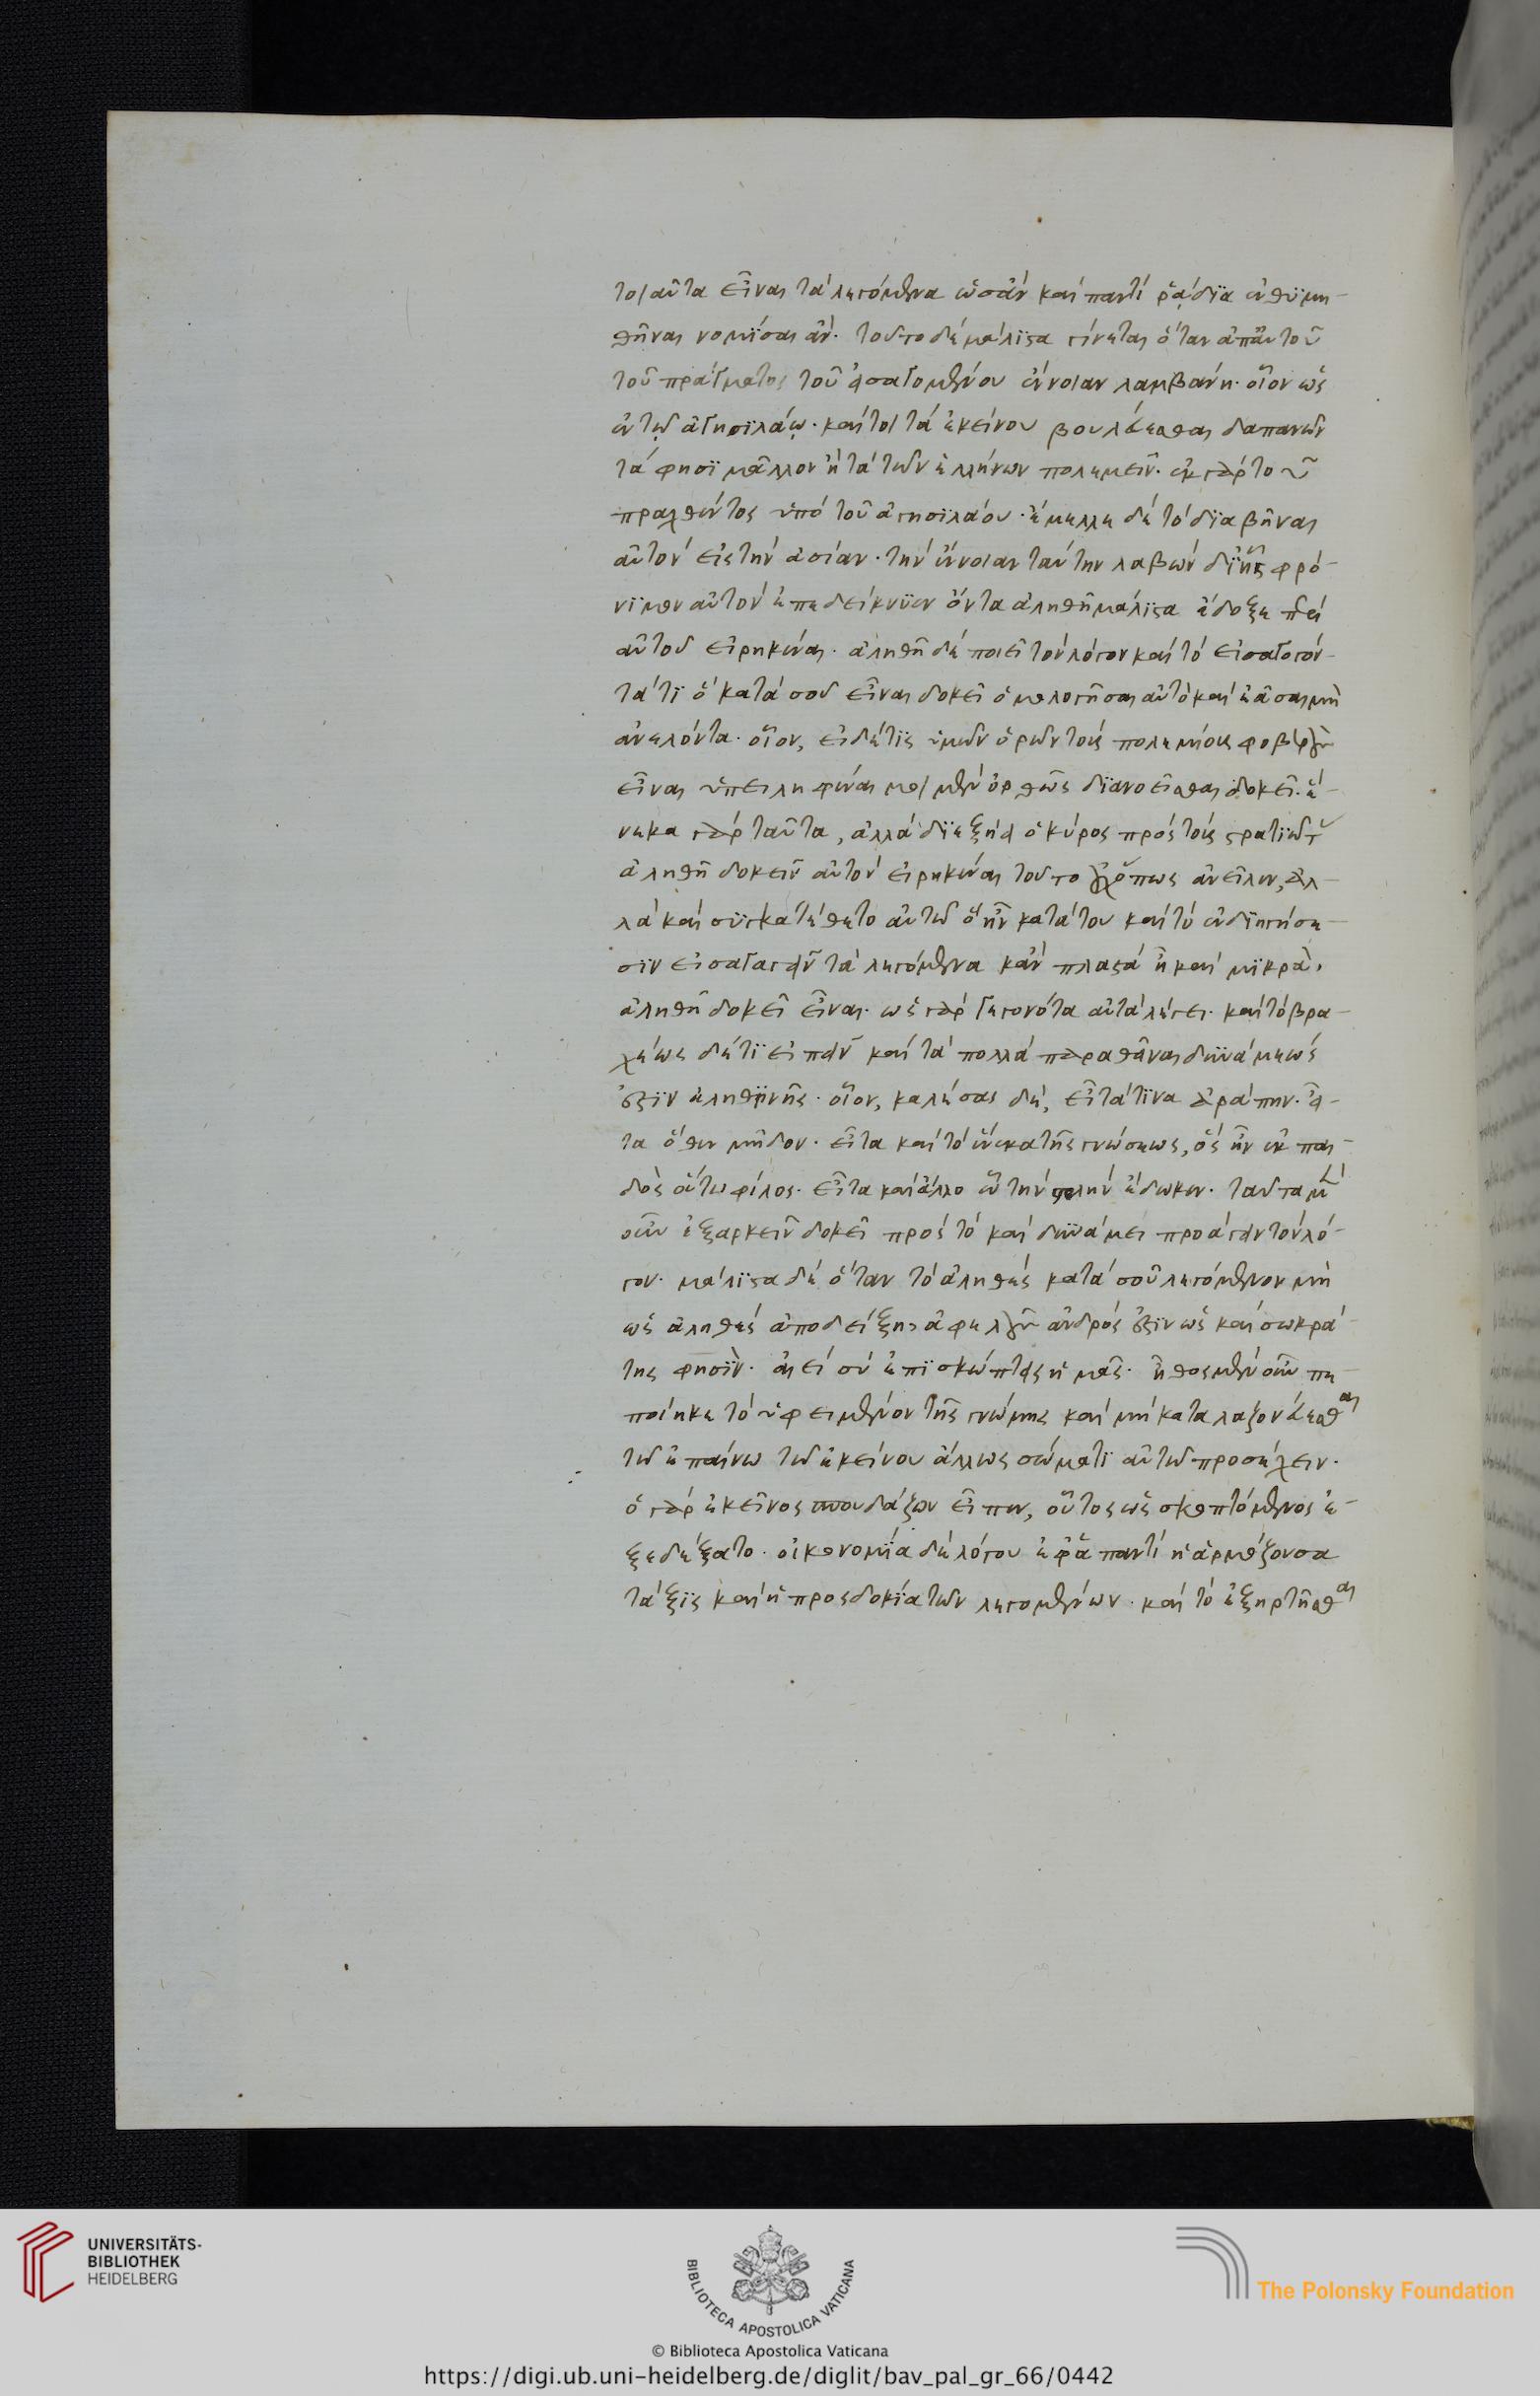 τοιαῦτα εἶναι τὰ λεγόμενα ὡς ἂν καὶ παντὶ ῥᾴδια ἐνθυμη-
θῆναι νομίσαι ἄν. τοῦτο δὲ μάλιστα γίνεται ὅταν ἀπ' αὐτοῦ
τοῦ πράγματος τοῦ εἰσαγομένου ἔννοιαν λαμβάνῃ. οἷον ὡς
ἐν τῷ ἀγησιλάῳ. καίτοι τὰ ἐκείνου βουλεύεσθαι δαπανῶν
τά φησι μᾶλλον ἢ τὰ τῶν ἑλλήνων πολεμεῖν. ἐκ γὰρ τοῦ
πραχθέντος ὑπὸ τοῦ ἀγησιλάου. ἔμελλε δὲ τὸ διαβῆναι
αὐτὸν εἰς τὴν ἀσίαν. τὴν ἔννοιαν ταύτην λαβὼν δι' ἧς φρό-
νιμον αὐτὸν ἐπεδείκνυεν ὄντα ἀληθῆ μάλιστα ἔδοξε περὶ
αὐτοῦ εἰρηκέναι. ἀληθῆ δὲ ποιεῖ τὸν λόγον καὶ τὸ εἰσαγαγόν-
τά τι ὃ κατὰ σοῦ εἶναι δοκεῖ ὁμολογῆσαι αὐτὸ καὶ ἐᾶσαι μὴ
ἀνελόντα. οἷον, εἰ δέ τις ὑμῶν ὁρῶν τοὺς πολεμίους φοβερὸν
εἶναι ὑπειληφέναι μοι μὲν ὀρθῶς διανοεῖσθαι δοκεῖ. ἕ-
νεκα γὰρ ταῦτα, ἀλλὰ διεξῄει ὁ κύρος πρὸς τοὺς στρατιώτας
ἀληθῆ δοκεῖν αὐτὸν εἰρηκέναι τοῦτο οὐχ ὅπως ἀνεῖλεν, ἀλ-
λὰ καὶ συγκατέθετο αὐτῷ ὃ ἦν κατὰ του καὶ τὸ ἐν διηγήσε-
σιν εἰσαγαγεῖν τὰ λεγόμενα κἂν πλαστὰ ἢ καὶ μικρὰ,
ἀληθῆ δοκεῖ εἶναι. ὡς γὰρ γεγονότα αὐτὰ λέγει. καὶ τὸ βρα-
χέως δέ τι εἰπεῖν καὶ τὰ πολλὰ παραθεῖναι δυνάμεώς
ἐστιν ἀληθινῆς. οἷον, καλέσας δὲ, εἶτά τινα ἀράπην. εἶ-
τα ὅθεν μῆδον. εἶτα καὶ τὸ ἕνεκα τῆς γνώσεως, ὃς ἦν ἐκ παι-
δὸς αὐτῷ φίλος. εἶτα καὶ ἄλλο ᾧ τὴν στολὴν ἔδωκεν. ταῦτα μὲν
οὖν ἐξαρκεῖν δοκεῖ πρὸς τὸ καὶ δυνάμει προάγειν τὸν λό-
γον. μάλιστα δὲ ὅταν τὸ ἀληθὲς κατὰ σοῦ λεγόμενον μὴ
ὡς ἀληθὲς ἀποδείξῃς ἀφελοῦς ἀνδρός ἐστιν ὡς καὶ σωκρά-
της φησίν. ἀεὶ σὺ ἐπισκώπτεις ἡμᾶς. ἦθος μὲν οὖν πε-
ποίηκε τὸ ὑφειμένον τῆς γνώμης καὶ μὴ καταλαζονεύεσθαι
τῷ ἐπαίνῳ τῷ ἐκείνου ἄλλως σώματι αὐτῷ προσέχειν.
ὁ γὰρ ἐκεῖνος σπουδάζων εἶπεν, οὗτος ὡς σκοπτόμενος ἐ-
ξεδέξατο. οἰκονομία δὲ λόγου ἐφ' ἅπαντι ἡ ἁρμόζουσα
τάξις καὶ ἡ προσδοκία τῶν λεγομένων. καὶ τὸ ἐξηρτῆσθαι
UNIVERSITÄTS-
BIBLIOTHEK
HEIDELBERG
BIBLIOTECA APOSTOLICA VATICANA
The Polonsky Foundation
© Biblioteca Apostolica Vaticana
https://digi.ub.uni-heidelberg.de/diglit/bav_pal_gr_66/0442